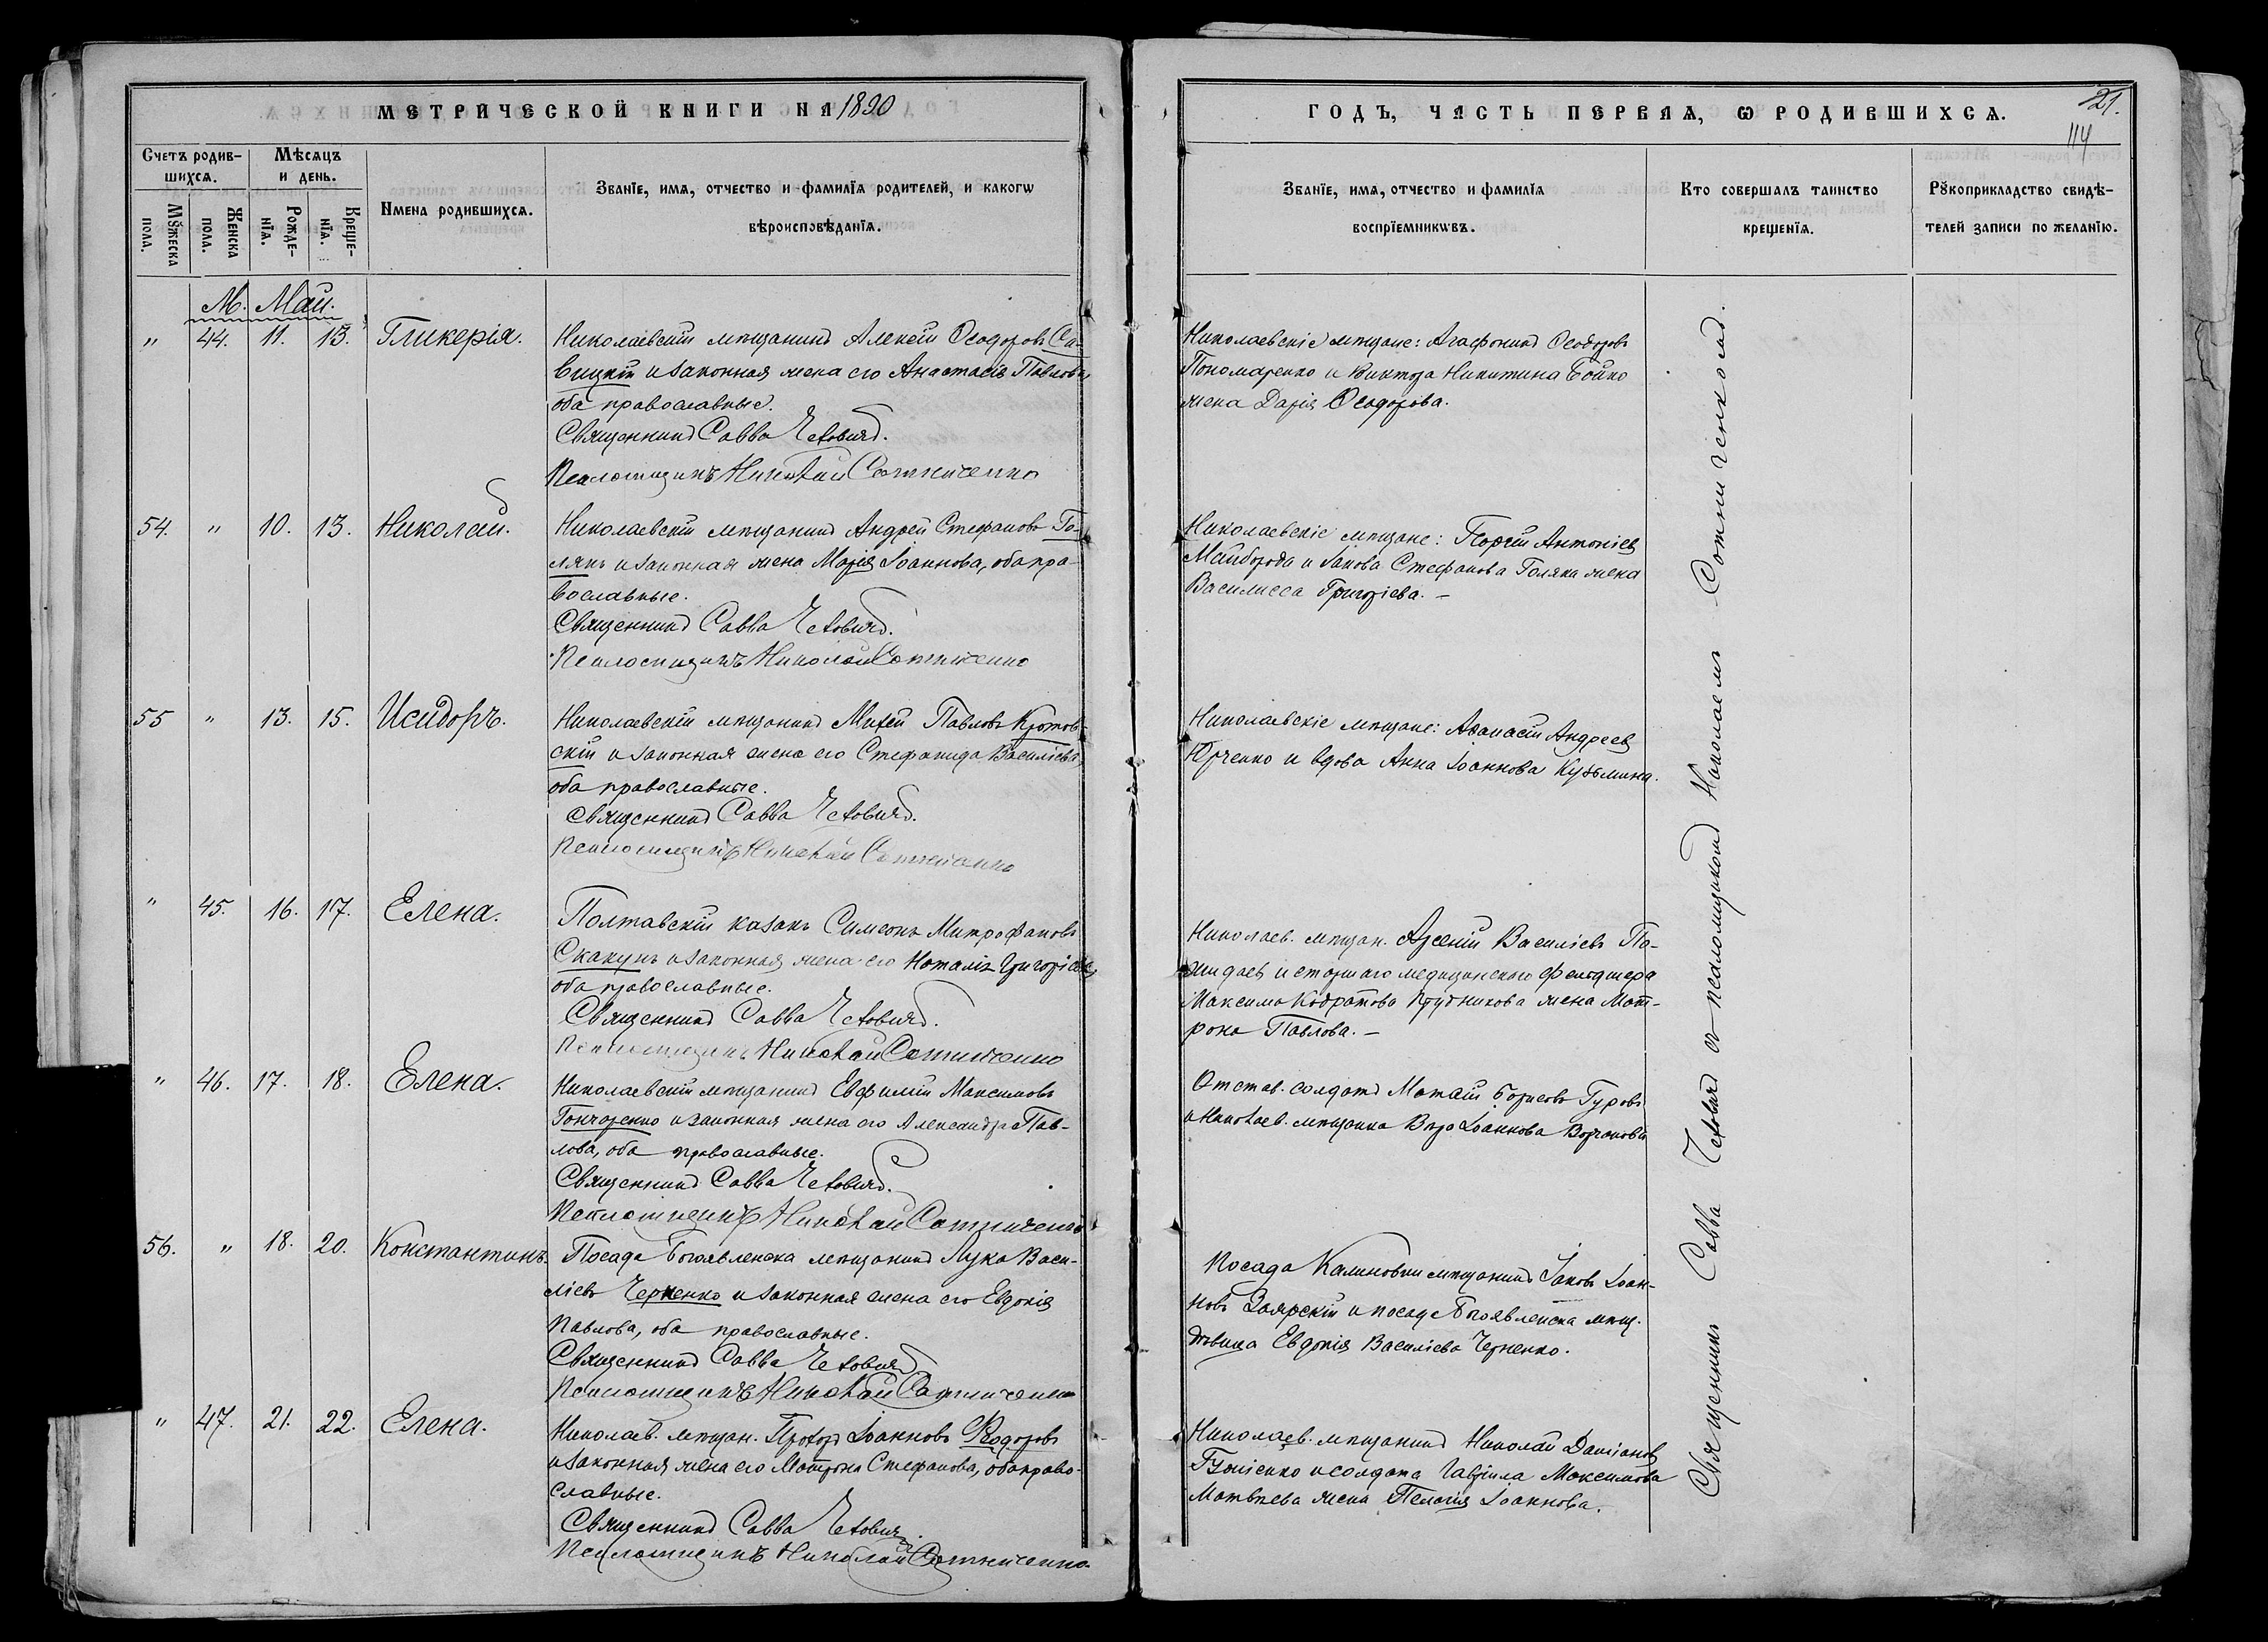 МЕТРИЧЕСКОЙ КНИГИ НА 1890
Счетъ родив-
шихся.
Мѣсяцъ
и день.
Мужеска
пола.
Женска
пола.
Рожде-
нія.
Креще-
нія.
Имена родившихся.
Званіе, имя, отчество и фамилія родителей, и какогѡ
вѣроисповѣданія.
М. Май.
" 44. 11. 13. Гликерія.
Николаевскій мѣщанинъ Алексѣй Ѳеодоровъ Са-
вицкій и законная жена его Анастасія Павлова,
оба православные.
Священникъ Савва
Псаломщикъ Николай Сотниченко
54. " 10. 13. Николай.
Николаевскій мѣщанинъ Андрей Стефановъ Го-
лякъ и законная жена Марія Іоаннова, оба пра-
вославные.
Священникъ Савва
Псаломщикъ Николай Сотниченко
55 " 13. 15. Исидоръ.
Николаевскій мѣщанинъ Михей Павловъ Кротов-
скій и законная жена его Стефанида Василіева,
оба православные.
Священникъ Савва
Псаломщикъ Николай Сотниченко
" 45. 16. 17. Елена.
Полтавскій казакъ Симеонъ Митрофановъ
Скакунъ и законная жена его Наталія Григоріева,
оба православные.
Священникъ Савва
Псаломщикъ Николай Сотниченко
" 46. 17. 18. Елена.
Николаевскій мѣщанинъ Евфимій Максимовъ
Гончаренко и законная жена его Александра Пав-
лова, оба православные.
Священникъ Савва
Псаломщикъ Николай Сотниченко
56. " 18. 20. Константинъ.
Посада Богоявленска мѣщанинъ Лука Васи-
ліевъ Черненко и законная жена его Евдокія
Павлова, оба православные.
Священникъ Савва
Псаломщикъ Николай Сотниченко
" 47. 21. 22. Елена.
Николаев. мѣщан. Прохоръ Іоанновъ Ѳеодоровъ
и законная жена его Матрона Стефанова, оба право-
славные.
Священникъ Савва
Псаломщикъ Николай Сотниченко
ГОДЪ, ЧАСТЬ ПЕРВАЯ, Ѡ РОДИВШИХСЯ.
21.
114
Званіе, имя, отчество и фамилія
воспріемникѡвъ.
Кто совершалъ таинство
крещенія.
Рукоприкладство свидѣ-
телей записи по желанію.
Николаевскіе мѣщане: Агафоникъ Ѳеодоровъ
Пономаренко и Виктора Никитина Бойко
жена Дарія Ѳеодорова.
Николаевскіе мѣщане: Георгій Антоніевъ
Майборода и Іакова Стефанова Голяка жена
Василисса Григоріева. –
Николаевскіе мѣщане: Аѳанасій Андреевъ
Юрченко и вдова Анна Іоаннова Кузьмина.
Николаев. мѣщан. Арсеній Василіевъ
и старшаго медицинскаго фельдшера
Максима Кодратова Прудникова жена Мат-
рона Павлова. –
Отстав. солдатъ Матѳій Борисовъ Гуровъ
и Николаев. мѣщанка Вѣра Іоаннова
Посада Калиновки мѣщанинъ Іаковъ Іоан-
новъ Заярскій и посада Богоявленска мѣщ.
дѣвица Евдокія Василіева Черненко.
Николаев. мѣщанинъ Николай Даміановъ
и солдата Гавріила Максимова
Матвѣева жена Пелагія Іоаннова.
Священникъ Савва съ псаломщикомъ Николаемъ Сотниченкомъ.